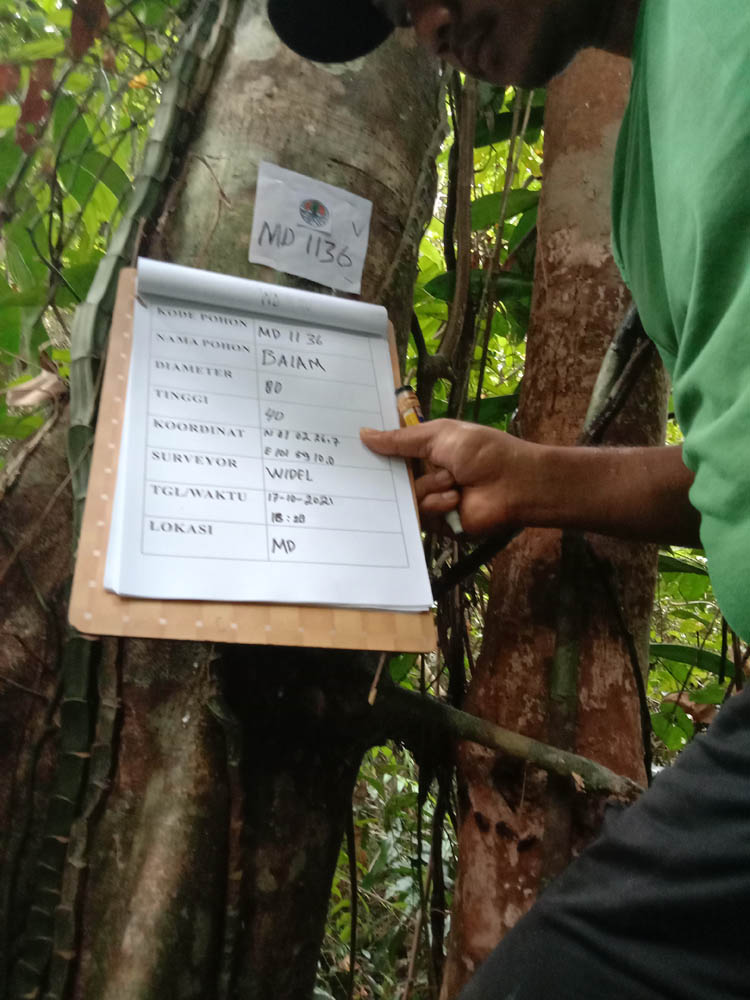 MD 1136
KODE POHON MD 11 36
NAMA POHON BALAM
DIAMETER 80
TINGGI 40
KOORDINAT N 01 02 26.7
E 101 59 10.0
SURVEYOR WIDEL
TGL/WAKTU 17-10-2021
18:20
LOKASI MD